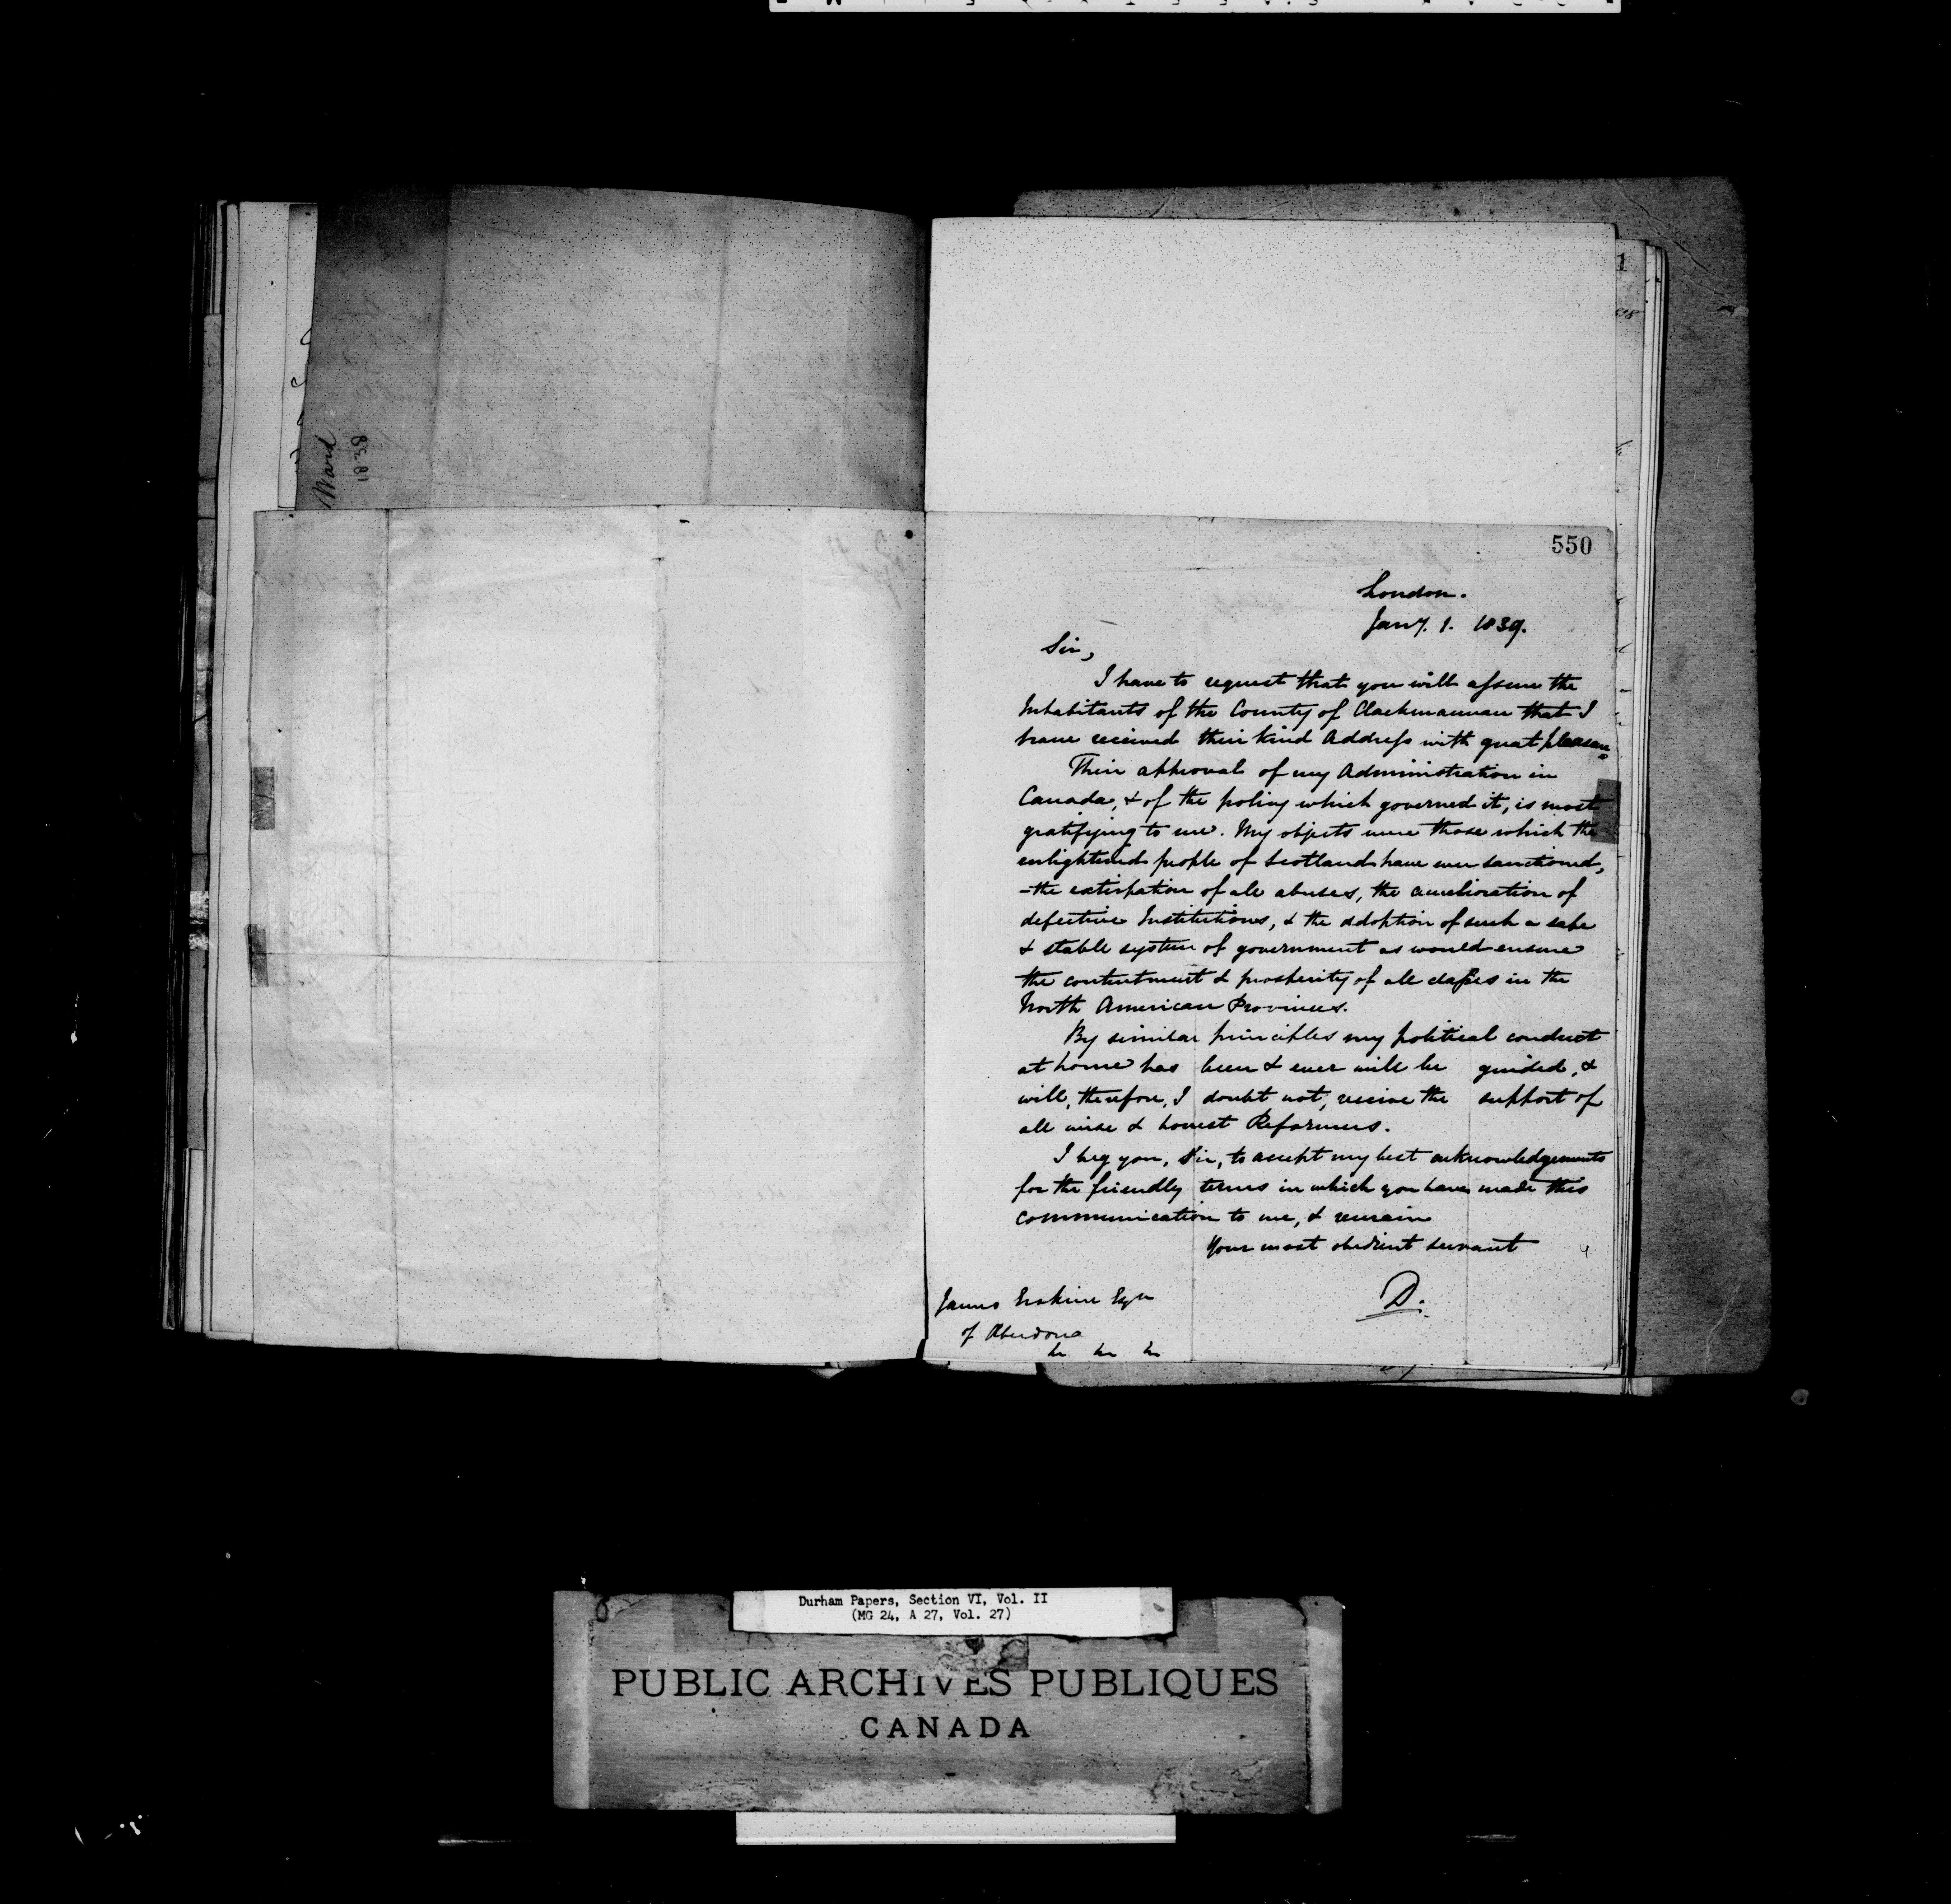 Ward
1838
1
550
London.
Jany. 1. 1839.
Sir,
I have to request that you will assure the
Inhabitants of the County of Clackmannan that I
have received their kind Address with great pleasure
Their approval of my Administration in
Canada, & of the policy which governed it, is most
gratifying to me. My objects were those which the
enlightened people of Scotland have ever sanctioned,
-the extirpation of all abuses, the amelioration of
defective Institutions, & the adoption of such a safe
& stable system of government as would ensure
the contentment & prosperity of all classes in the
North American Provinces.
By similar principles my political conduct
at home has been & ever will be guided, &
will, therefore, I doubt not, receive the support of
all wise & honest Reformers.
I beg you, Sir, to accept my best acknowledgements
for the friendly terms in which you have made this
communication to me, & remain
Your most obedient servant
D.
James Erskine Esqr
of Aberdona
&c &c &c
Durham Papers, Section VI, Vol. II
(MG 24, A 27, Vol. 27)
PUBLIC ARCHIVES PUBLIQUES
CANADA